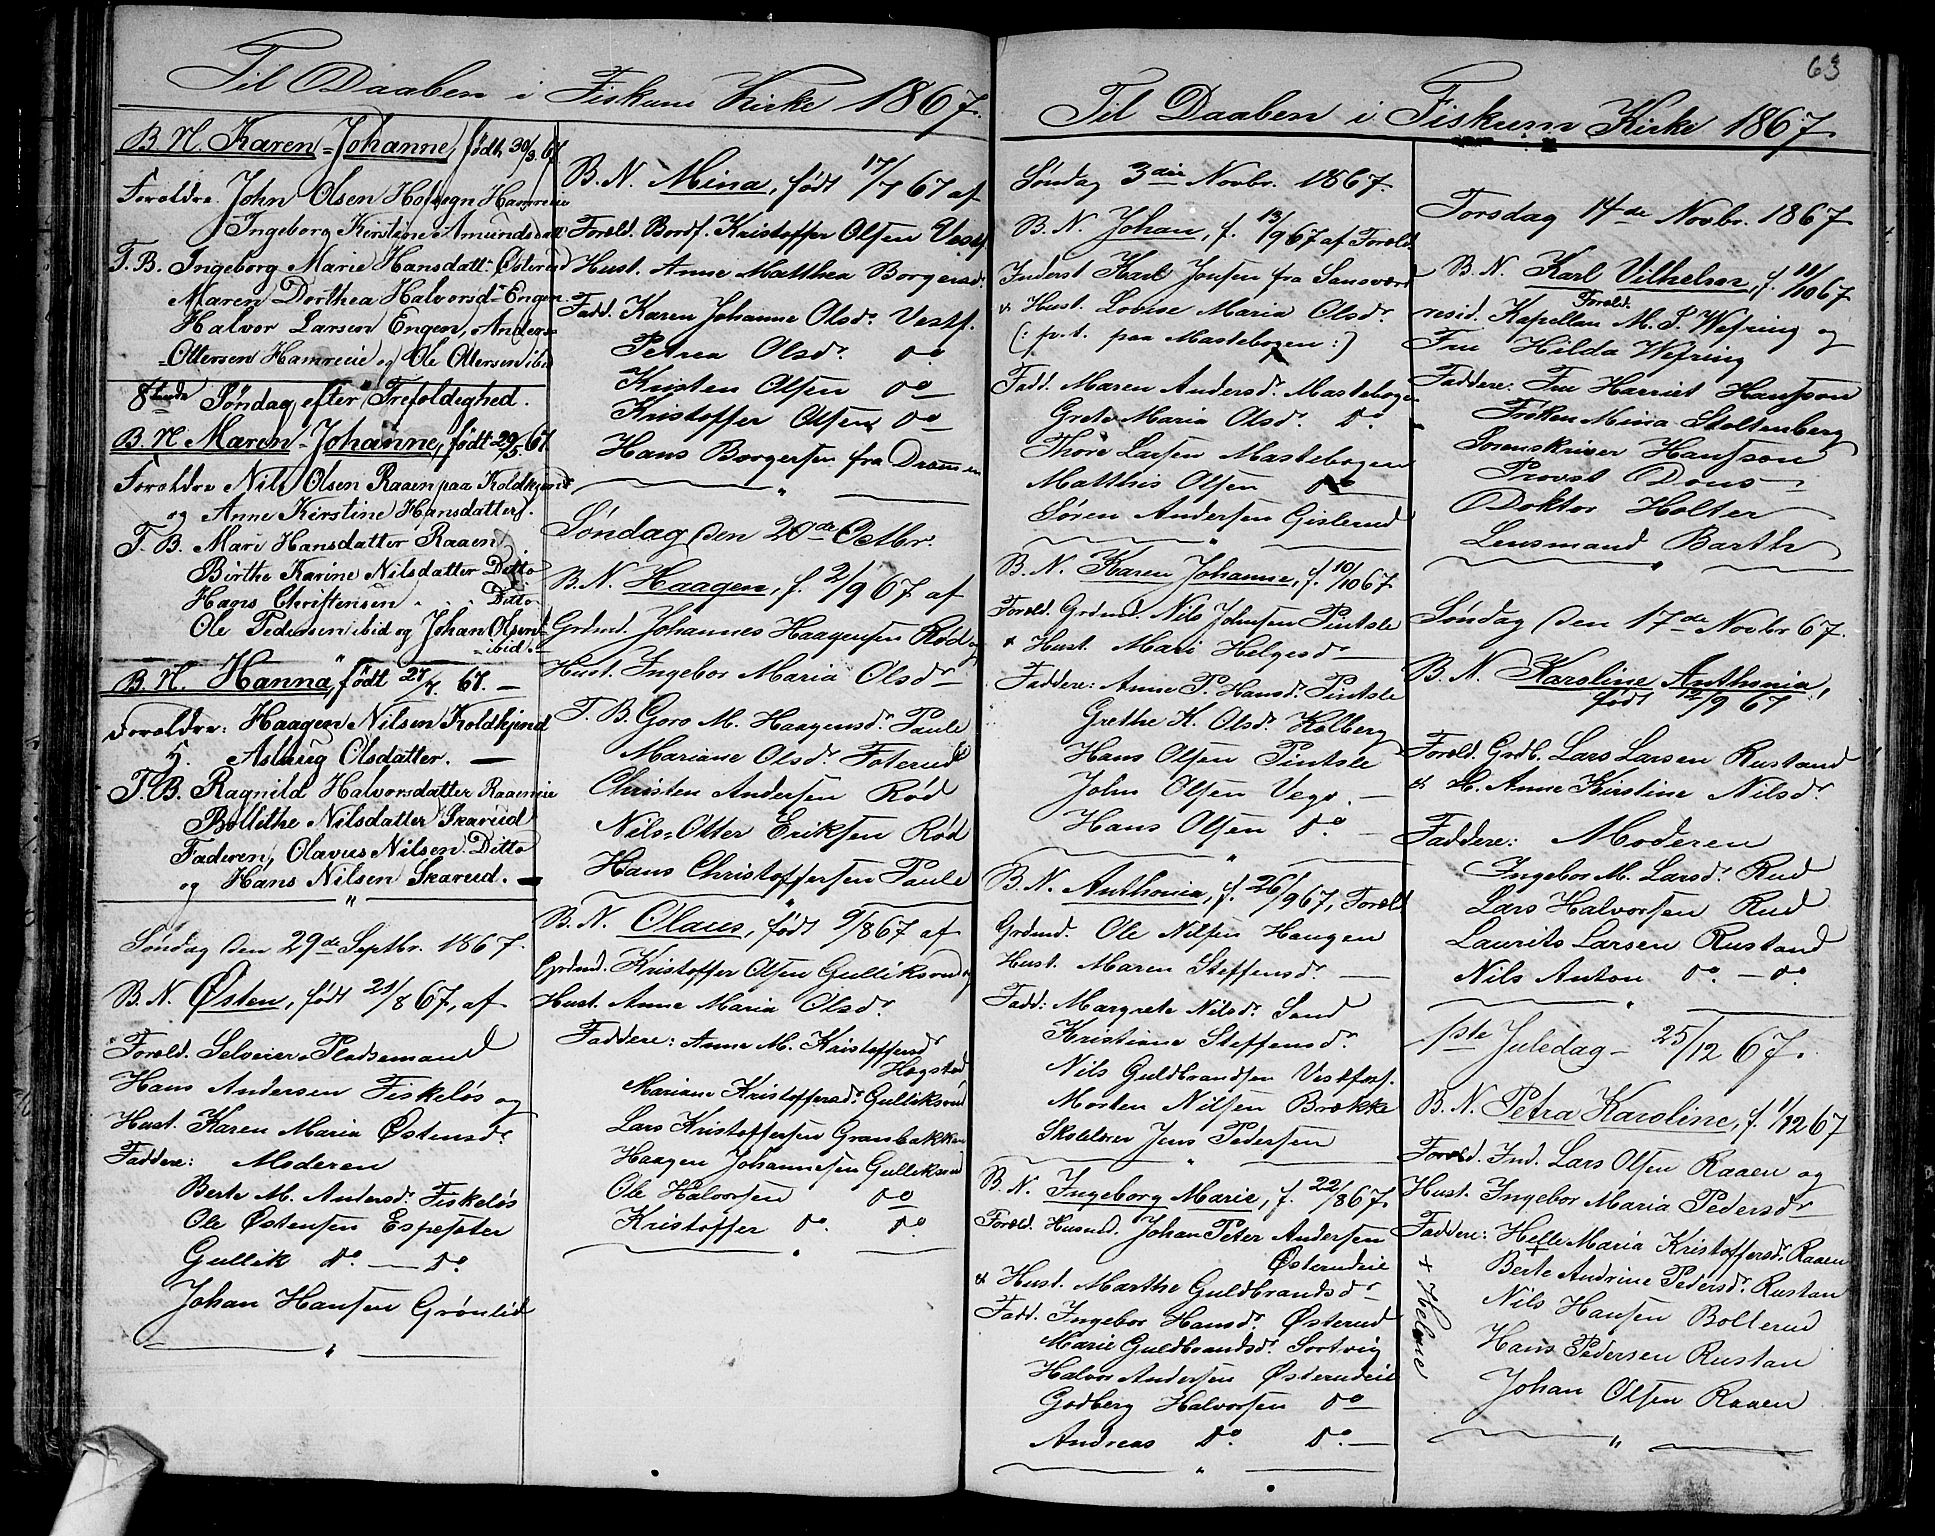 Til Daaben i Fiskum Kirke 1867.
B. N. Karen-Johanne, født 30/3 67
Foreldre. John Olsen Holtegn Hamreeie
Ingeborg Kirstine Amundsdatt
T. B. Ingeborg Marie Hansdatt. Østerud
Maren Dorthea Halvorsd. Engen
Halvor Larsen Engen, Anders
Ottersen Hamreeie og Ole Ottersen ibid
8tende Søndag efter Trefoldighed.
B. N. Maren-Johanne, født 29/5 67
Foreldre Nils Olsen Raaen paa Koldkjend
og Anne Kirstine Hansdatter.
T. B. Mari Hansdatter Raaen
Birthe Karine Nilsdatter Ditto
Hans Christensen . . Ditto
Ole Pedersen ibid og Johan Olsen
ibid.
B. N. Hanna, født 27/7 67. —
Foreldre: Haagen Nilsen Koldkjend
H. Aslaug Olsdatter. —
T. B. Ragnild Halvorsdatter Raaeneie
Bollithe Nilsdatter Skarud
Faderen, Olavus Nilsen Ditto
og Hans Nilsen Skarud. —
Søndag den 29de Septbr. 1867.
B. N. Østen, født 21/8 67, af
Foreld. Selveier Pladsemand
Hans Andersen Fiskeløs og
Hust. Karen Maria Østensdr.
Faddere: Moderen
Berte M. Andersdr. Fiskeløs
Ole Østensen Espeseter
Gullik do. — do.
Johan Hansen Grønlid
B. N. Mina, født 17/7 67 af
Foreld. Bordf. Kristoffer Olsen Vestf.
Hust. Anne Matthea Borgersdr.
Fadd. Karen Johanne Olsdr. Vestf.
Petrea Olsdr. do
Kristen Olsen do
Kristoffer Olsen do
Hans Borgersen fra Drammen
Søndag den 20de Octbr.
B. N. Haagen, f. 2/9 67 af
Grdmd. Johannes Haagensen Rød og
Hust. Ingebor Maria Olsdr
T. B. Goro M. Haagensdr. Paule
Mariane Olsdr. Foterud
Christen Andersen Rød
Nils-Otter Eriksen Rød
Hans Christoffersen Paule
B. N. Olaus, født 9/8 67 af
Grdmd. Kristoffer Olsen Gulliksrud og
Hust. Anne Maria Olsdr.
Faddere: Anne M. Kristoffersdr
Hogstad
Mariane Kristoffersdr. Gulliksrud
Lars Kristoffersen Granbakken
Haagen Johannesen Gulliksrud
Ole Halvorsen do
Kristoffer do. do.
63
Til Daaben i Fiskum Kirke 1867.
Søndag 3die Novbr. 1867.
B. N. Johan, f. 13/9 67 af Foreld.
Inderst Karl Jonsen fra Sansverd
& Hust. Lovise Maria Olsdr.
(: p. t. paa Mastebogen :)
Fadd. Maren Andersdr. Mastebogen
Grete Maria Olsdr. do.
Thore Larsen Mastebogen
Matthis Olsen do
Søren Andersen Gislerud
B. N. Karen Johanne, f. 10/10 67.
Foreld. Grdmd. Nils Johnsen Pintsle
& Hust. Mari Helgesdr —
Faddere: Anne P. Hansdr. Pintsle
Grethe K. Olsdr. Kolberg
Hans Olsen Pintsle
John Olsen Vego. —
Hans Olsen do. —
B. N. Anthonia, f. 26/9 67, Foreld
Grdmd. Ole Nilsen Haugen
Hust. Maren Steffensdr. —
Fadd: Margrete Nilsdr. Sand
Kristiane Steffensdr.
Nils Guldbrandsen Vestfos.
Morten Nilsen Brække
Skolelærer Jens Pedersen
B. N. Ingeborg Marie, f. 22/8 67.
Foreld. Husmd. Johan Peter Andersen
Østerudeie
& Hust. Marthe Guldbrandsdr
Fadd. Ingebor Hansdr. Østerud
Marie Guldbrandsdr. Sortvig
Halvor Andersen Østerudeie
Godberg Halvorsen do
Andreas do. do. —
Torsdag 14de Novbr. 1867.
B. N. Karl Vilhelm, f. 11/10 67
Foreld:
resid. Kapellan M. P. Wefring og
Fru Hilda Wefring
Faddere: Fru Harriet Hansson
Frøken Mina Stoltenberg
Sorenskriver Hansson
Provst Dons
Doktor Holter
Lensmand Barth
Søndag den 17de Novbr 67.
B. N. Karoline Anthonia,
født 12/9 67
Foreld. Grdb. Lars Larsen Rustand
& H. Anne Kirstine Nilsdr.
Faddere: Moderen
Ingebor M. Larsdr. Rud
Lars Halvorsen Rud
Laurits Larsen Rustand
Nils Anton do — do.
1ste Juledag — 25/12 67.
B. N. Petra Karoline, f. 1/12 67
Foreld. Ind. Lars Olsen Raaen og
Hust. Ingebor Maria Pedersdr
Faddere: Helle Maria Kristoffersdr. Raaen
+
Berte Andrine Pedersdr. Rustan
Nils Hansen Bollerud
Hans Pedersen Rustan
Johan Olsen Raaen
+ Helene